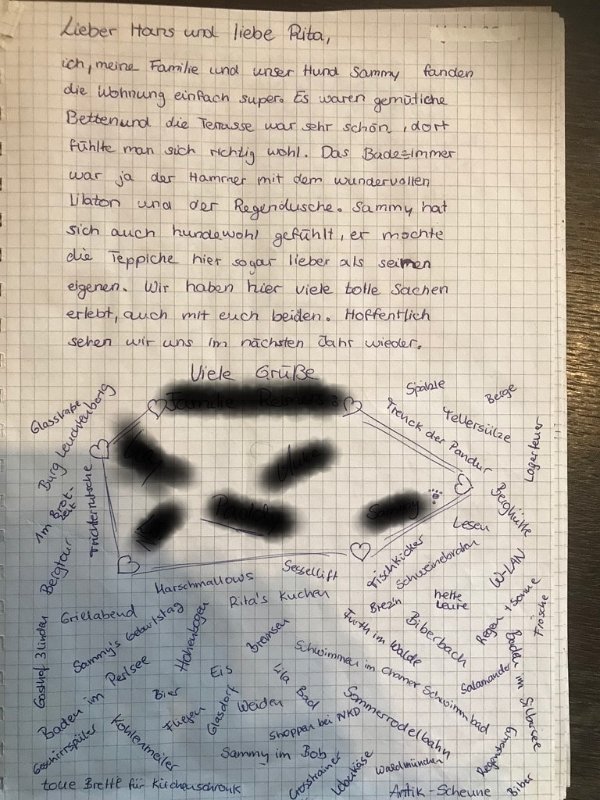 Lieber Hans und liebe Rita,
ich, meine Familie und unser Hund Sammy fanden
die Wohnung einfach super. Es waren gemütliche
Betten und die Terrasse war sehr schön, dort
fühlte man sich richtig wohl. Das Badezimmer
war ja der Hammer mit dem wundervollen
lilaton und der Regendusche. Sammy hat
sich auch hundewohl gefühlt, er mochte
die Teppiche hier sogar lieber als seinen
eigenen. Wir haben hier viele tolle Sachen
erlebt, auch mit euch beiden. Hoffentlich
sehen wir uns im nächsten Jahr wieder.
Viele Grüße
Spätzle
Berge
Glasstraße
Burg Leuchtenberg
Trenck der Pandur
Tellersülze
Lagerfeuer
Trichterrutsche
Berghütte
Lesen
Bergtour
Tischkicker
Schweinebraten
W-LAN
Marshmallows
Sessellift
Grillabend
Rita's Kuchen
Brezn
nette
Leute
Regen + Sonne
Frösche
Gasthof 3 Linden
Sammy's Geburtstag
Hohenbogen
Bremsen
Furth im Walde
Biberbach
Baden im Perlsee
Eis
Lila Bad
Schwimmen im Chamer Schwimmbad
Salamander
Baden im Silbersee
Bier
Geschirrspüler
Kohlenmeiler
Fliegen
Glasdorf
Weiden
Shoppen bei NKD
Sommerrodelbahn
Sammy im Bob
Crosstrainer
Waldmünchen
Regensburg
tolle Bretter für Küchenschrank
Antik-Scheune
Biber